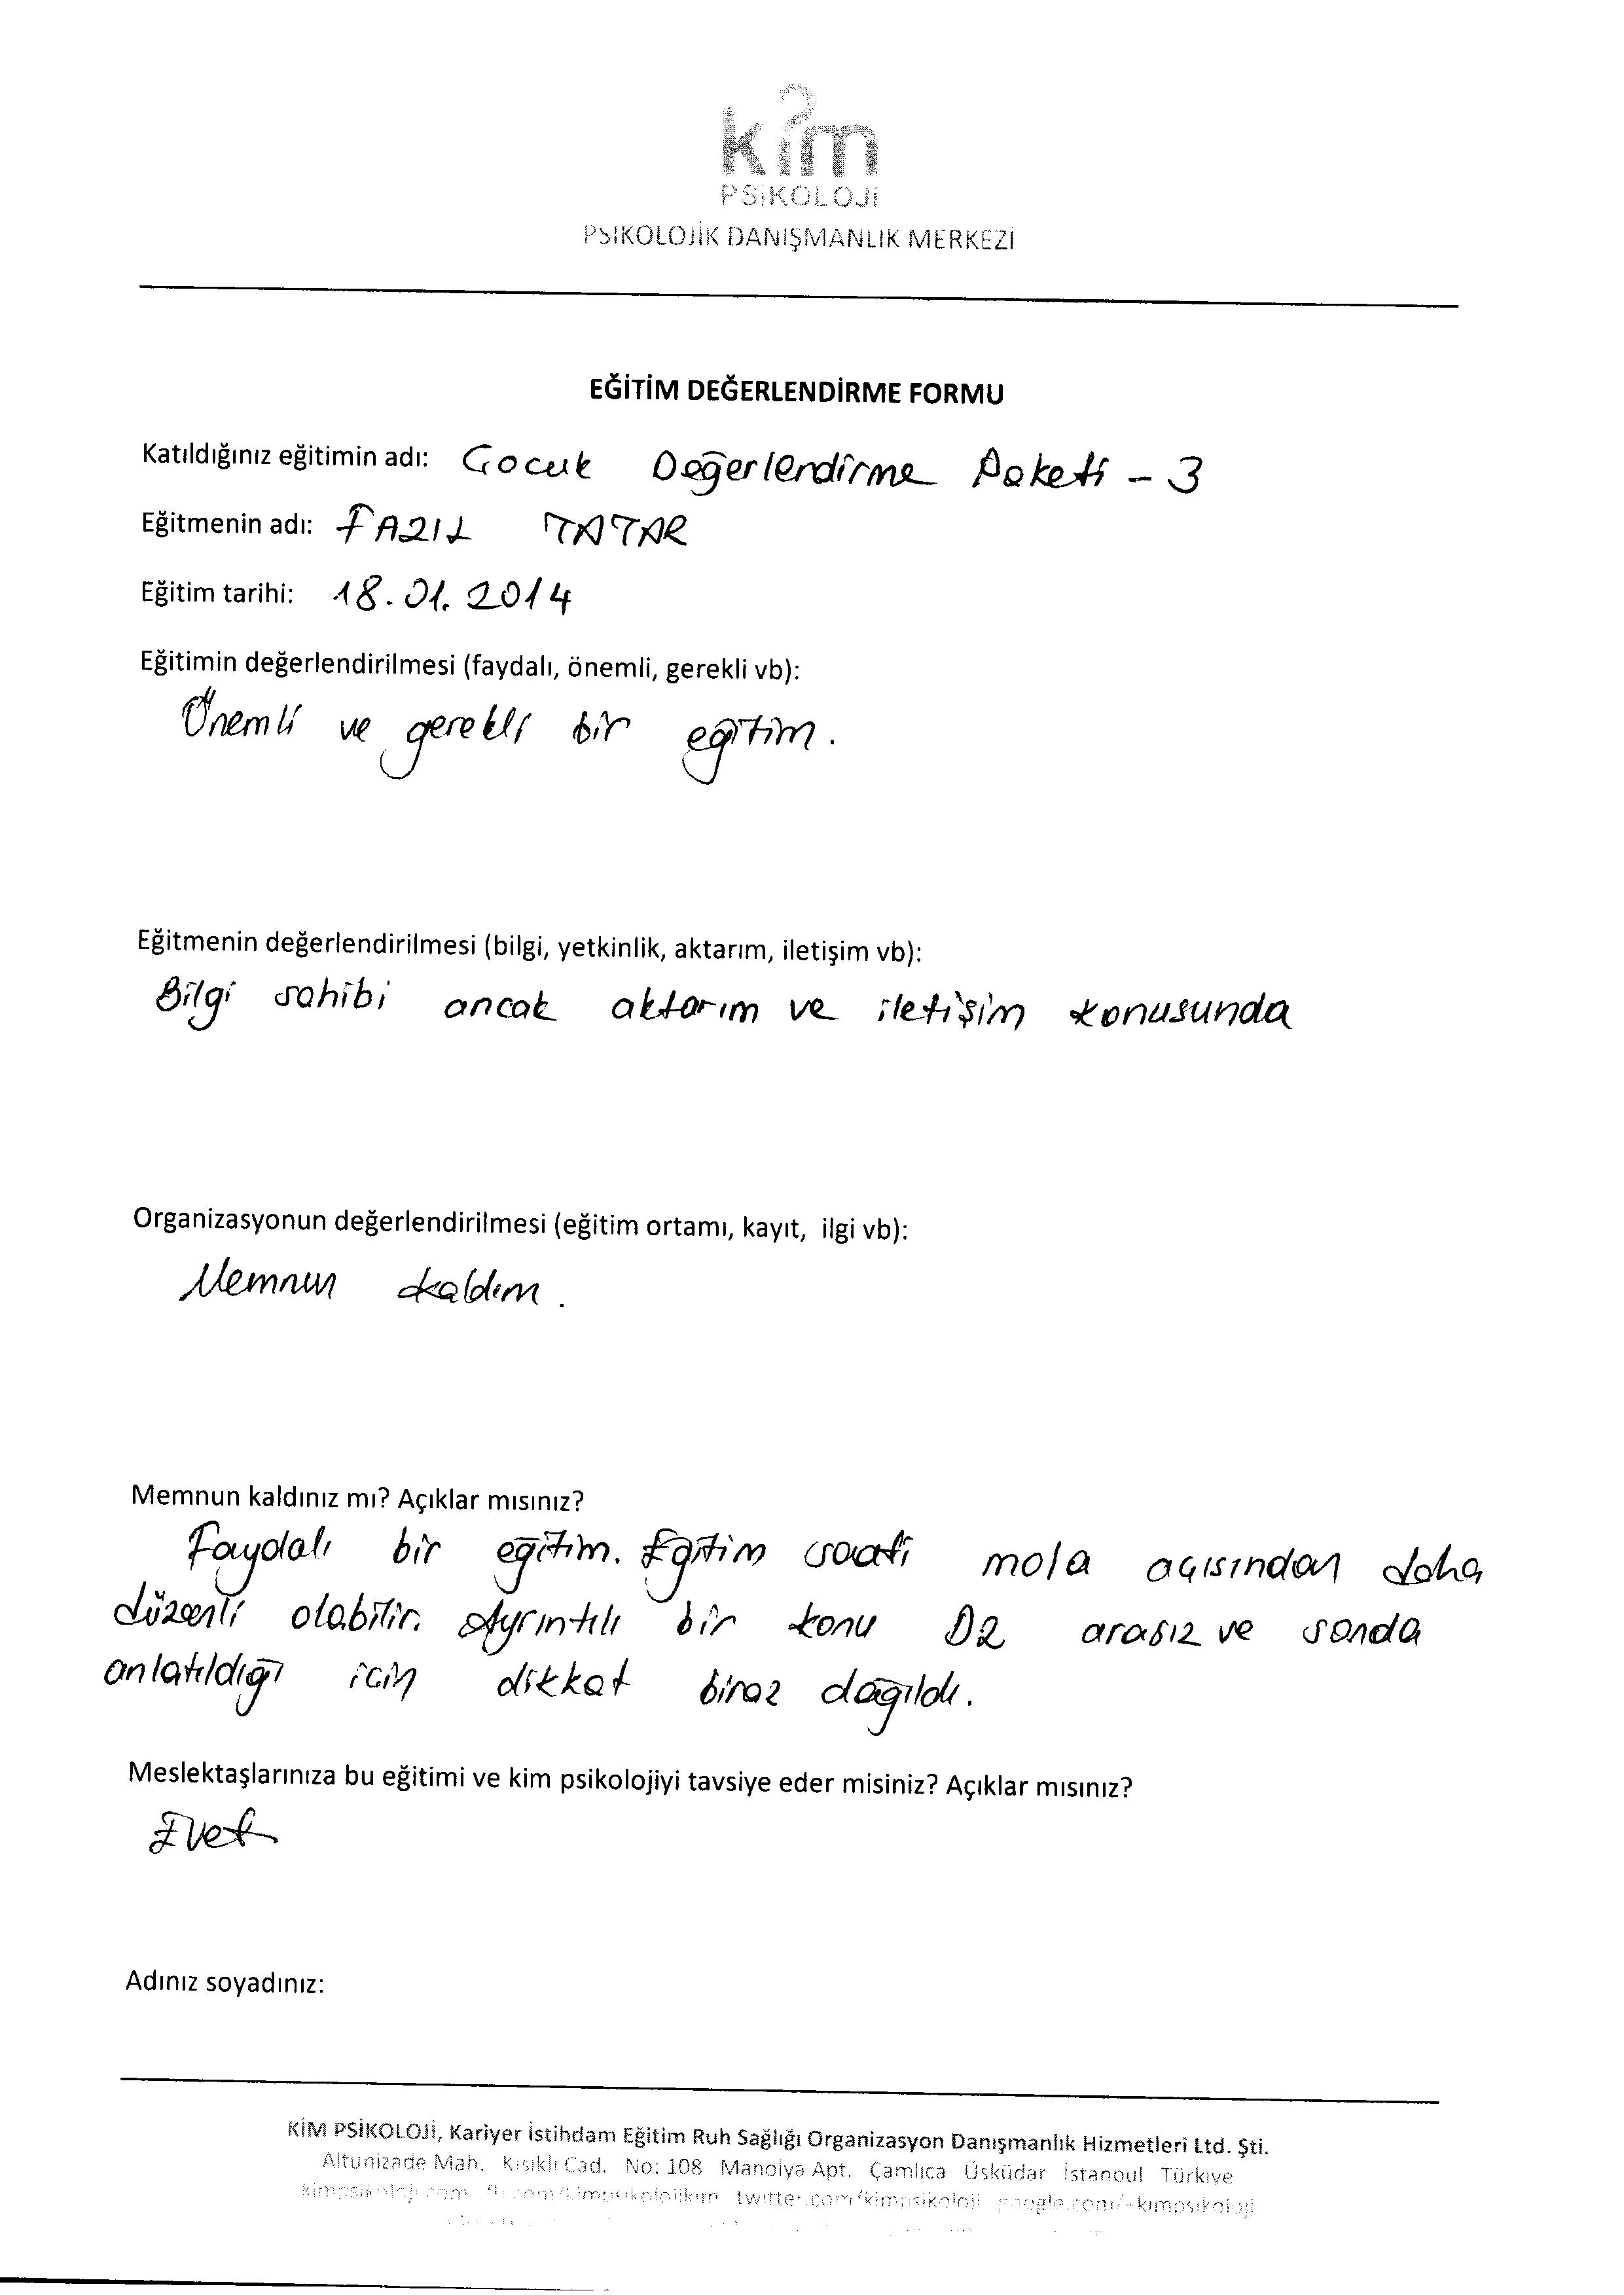 kim
PSİKOLOJİ
PSİKOLOJİK DANIŞMANLIK MERKEZİ
EĞİTİM DEĞERLENDİRME FORMU
Katıldığınız eğitimin adı: Çocuk Değerlendirme Paketi - 3
Eğitmenin adı: FAZIL TATAR
Eğitim tarihi: 18.01.2014
Eğitimin değerlendirilmesi (faydalı, önemli, gerekli vb):
Önemli ve gerekli bir eğitim.
Eğitmenin değerlendirilmesi (bilgi, yetkinlik, aktarım, iletişim vb):
Bilgi sahibi ancak aktarım ve iletişim konusunda
Organizasyonun değerlendirilmesi (eğitim ortamı, kayıt, ilgi vb):
Memnun kaldım.
Memnun kaldınız mı? Açıklar mısınız?
Faydalı bir eğitim. Eğitim saati mola açısından daha
düzenli olabilir. Ayrıntılı bir konu D2 arasız ve sonda
anlatıldığı için dikkat biraz dağıldı.
Meslektaşlarınıza bu eğitimi ve kim psikolojiyi tavsiye eder misiniz? Açıklar mısınız?
Evet
Adınız soyadınız:
KİM PSİKOLOJİ, Kariyer İstihdam Eğitim Ruh Sağlığı Organizasyon Danışmanlık Hizmetleri Ltd. Şti.
Altunizade Mah. Kısıklı Cad. No: 108 Manolya Apt. Çamlıca Üsküdar İstanbul Türkiye
kimpsikoloji.com fb.com/kimpsikolojikim twitter.com/kimpsikoloji google.com/+kimpsikoloji